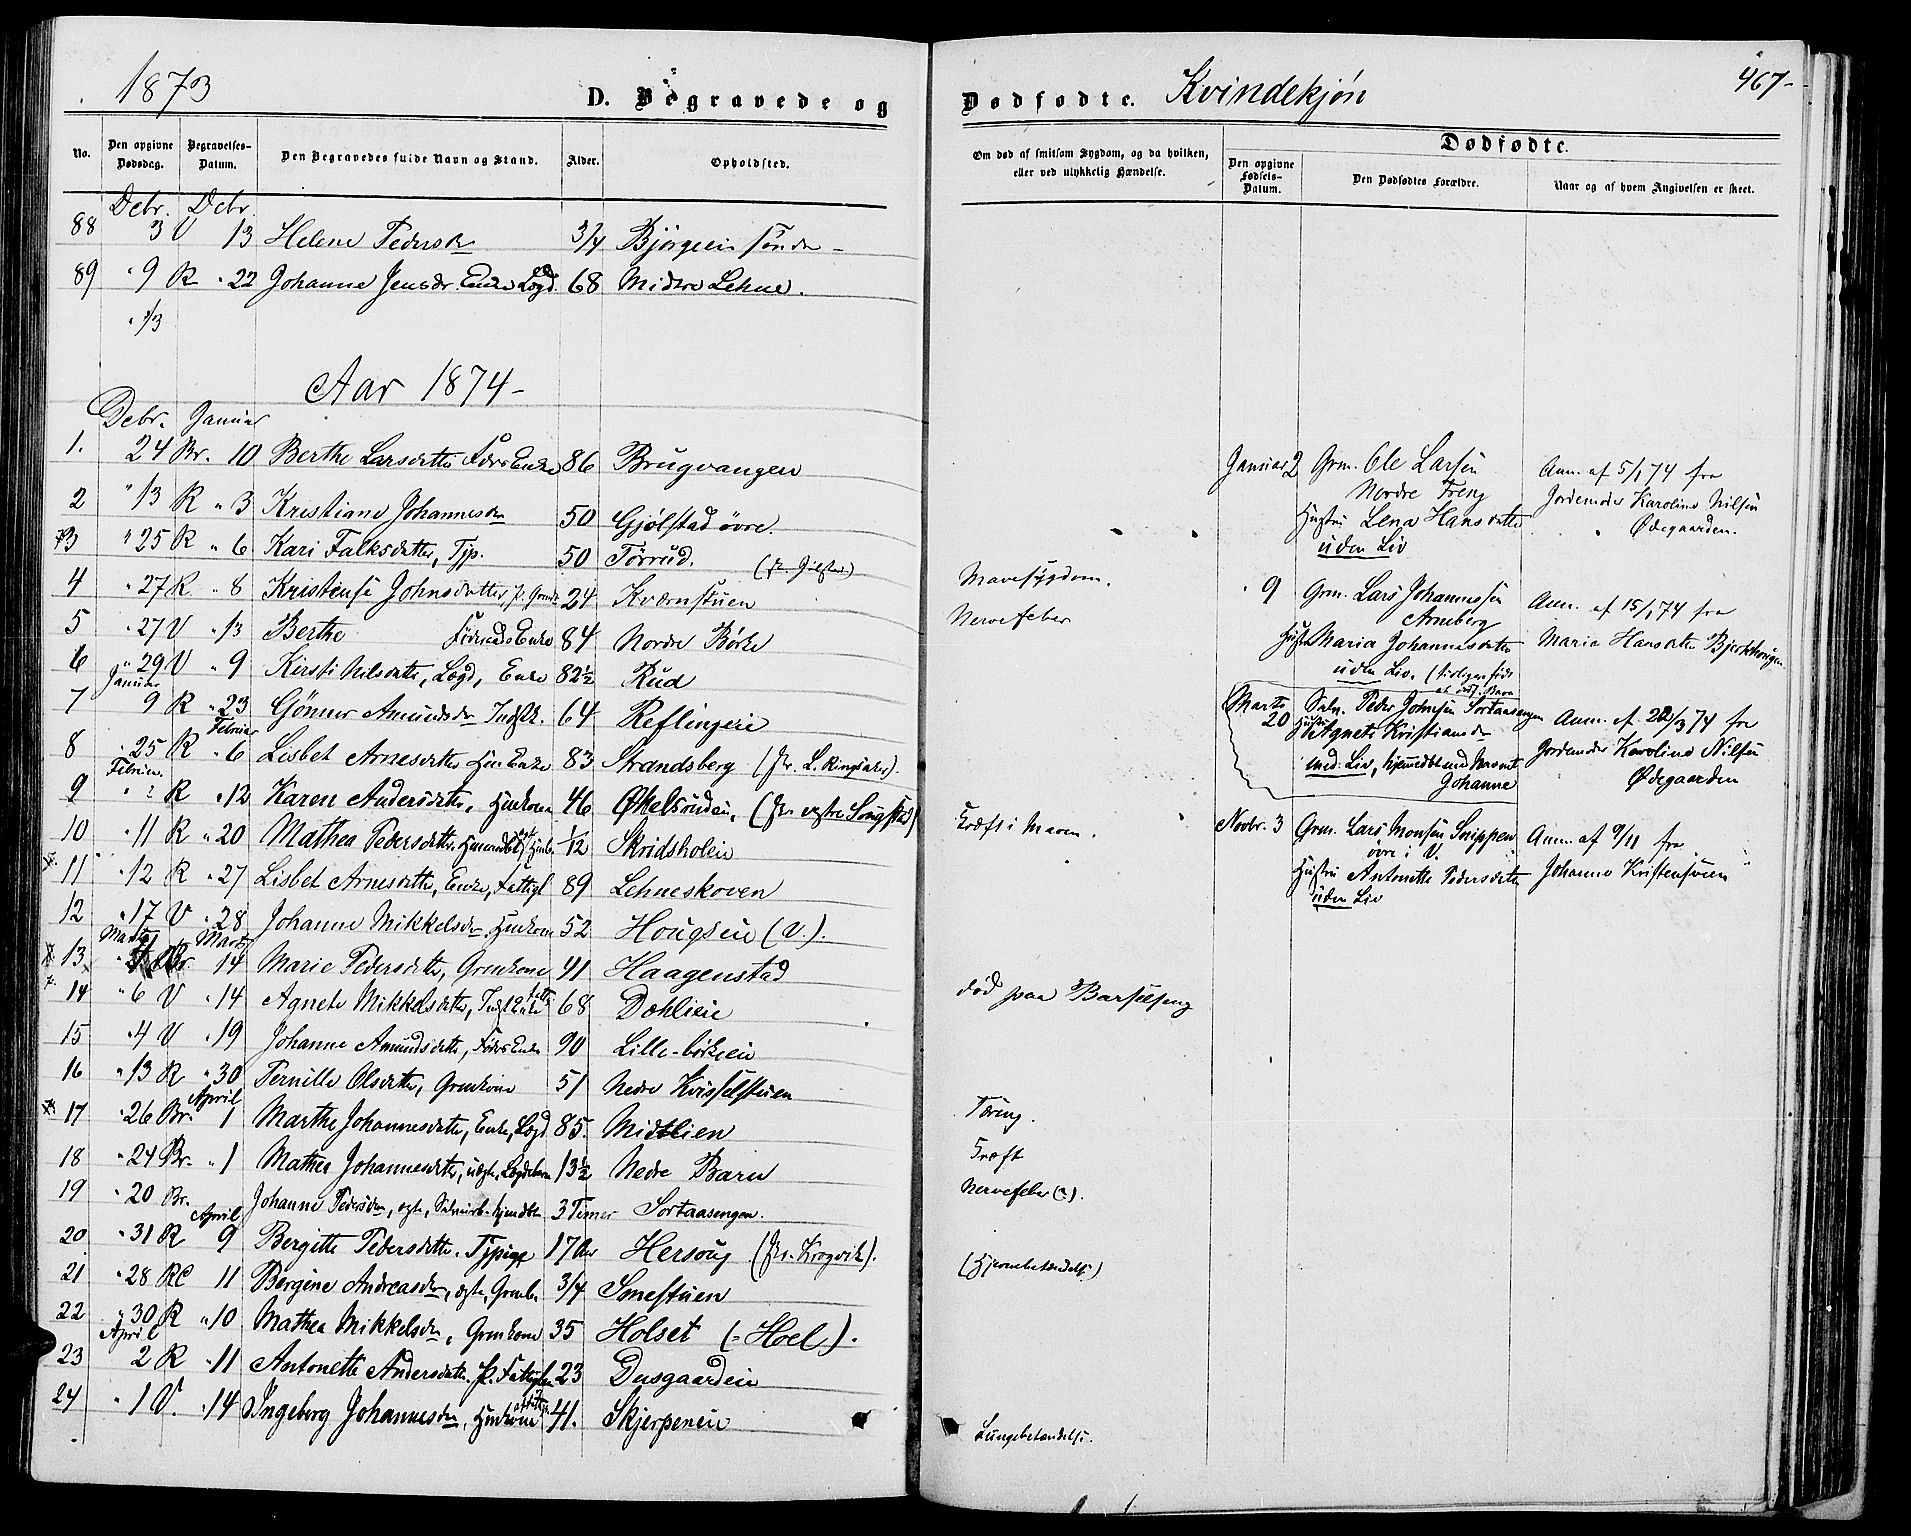 1873 D. Begravede og
No. Den opgivne Dødsdag. Begravelses-Datum. Den Begravedes fulde Navn og Stand. Alder. Opholdsted.
Debr. Debr.
88 3 V 13 Helene Pedersdr 3/4 Bjørgeeie søndre
89 " 9 R " 22 Johanne Jensdr Enke Lægd. 68 Midtre Lehne.
" 13
Aar 1874-
Debr. Januar
1. 24 Br. 10 Berthe Larsdatter Føderaads Enke 86 Brugvangen
2 " 13 R " 3 Kristiane Johannesdr 50 Gjølstad øvre.
3 " 25 R " 6 Kari Falksdatter, Tjp. 50 Tørrud.
4 " 27 R " 8 Kristense Johnsdatter, p. 24 Kværnstuen
5 " 27 V " 13 Berthe Føderaads Enke 84 Nordre Børke
6 " 29 V " 9 Kirsti Nilsdatter, Lægd, Enke 82½ Rud
Januar
7 9 R " 23 Gönner Amundsdr 64 Reflingeie
Februar
8 " 25 R " 6 Lisbet Arnesdatter Enke 83 Strandsberg (fr. L. Ringsaker).
Februar
9 " ? R " 12 Karen Andersdatter, Huskone 46 Økelsrudeie, (fr. vestre
10 " 11 R " 20 Mathea Pedersdatter 1/12 Skridsholeie
11 " 12 R " 27 Lisbet Arnesdatter, Enke, Fattigl 89 Lehneskoven
12 " 17 V " 28 Johanne Mikkelsdr Huskone 52 Hougseie (V.).
Marts Marts
13 Br. 14 Marie Pedersdatter, Grmkone 41 Haagenstad
14 " 6 V " 14 Agnete Mikkelsdatter, 68 Dæhlieie
15 " 4 V " 19 Johanne Amundsdatter, Føder Enke 90 Lille-børkeeie
16 " 13 R " 30 Pernille Olsdatter, Grmkone 51 Nedre Kvisselstuen
April
17 " 26 Br. 1 Marthe Johannesdatter, Enke, Lægd 85. Midtlien
18 " 24 Br. " 1 Mathea Johannesdatter, uægte, Lægdebarn 13½ Nedre Baru
19 " 20 Br. Johanne Pedersdr, ægte, hjemdøbt 3 Timer Sortaasengen.
April
20 " 31 R 9 Bergitte Pedersdatter. Tjpige 17 Aar Hersoug (fr. Krogvik).
21 " 28 RC 11 Bergine Andreasdr, ægte, Grmb. 3/4 Smestuen
22 " 30 R " 10 Mathea Mikkelsdr, Grmkone 35 Holset (= Hoel).
April
23 2 R " 11 Antonette Andersdatter. p. 23 Dusgaardeie
24 " 1 V. " 14 Ingeborg Johannesdr, Huskone 41. Skjerpeneie
Dødfødte. Kvindekjøn 467-
Om død af smitsom Sygdom, og da hvilken, eller ved ulykkelig Hændelse.
Dødfødte.
Den opgivne Fødsels-Datum. Den Dødfødtes Forældre. Naar og af hvem Angivelsen er skeet.
Januar 2 Grm. Ole Larsen Anm. af 5/1 74 fra
Nordre Freng Jordemoder Karoline Nilsen
Hustru Lena Hansdatter Ødegaarden.
uden Liv
Mavesygdom.
" 9 Grm. Lars Johannessen Anm. af 15/1 74 fra
Arneberg
Nervefeber
Hustru Maria Johannesdatter Maria Hansdatter Bjerkhougen
uden Liv.
Marts 20 Peder Johnsen Sortaasengen Anm. af 22/3 74 fra
Hustru Agnete Kristiansdr Jordemoder Karoline Nilsen
med Liv, hjemdøbt med Navnet Ødegaarden
Johanne
Kræft i Maven.
Novbr. 3 Grm. Lars Monsen Snippen Anm. af 9/11 fra
øvre i V.
Hustru Antonette Pedersdatter Johanne Kristenstuen
uden Liv
død paa Barselseng
Tæring.
Kræft
Nervefeber (?).
(Hjernebetændelse)
Lungebetændelse.